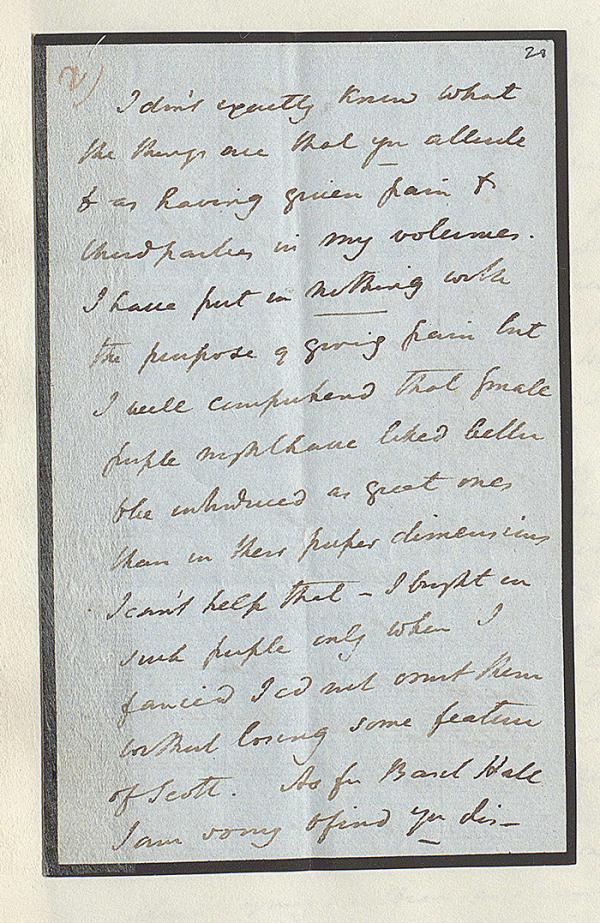 2)
28
I don't exactly know what
the things are that yu allude
to as having given pain to
third parties in my volumes.
I have put in nothing with
the purpose of giving pain but
I well comprehend that small
people might have liked better
to be introduced as great ones
than in their proper dimensions
I can't help that - I bro't in
such people only when I
fancied I cd not omit them
without losing some feature
of Scott. As for Basil Hall
I am sorry to find yu dis-